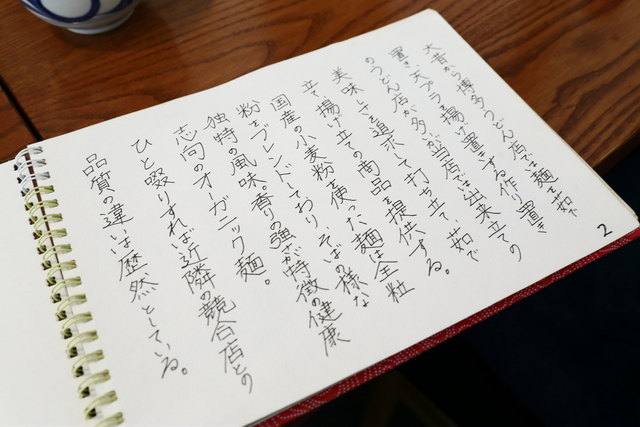 大昔から博多うどん店では麺を茹で
置き、天プラを揚げ置きする作り置き
のうどん店が多いが当店では出来立ての
美味しさを追求して打ち立て、茹で
立て、揚げ立ての商品を提供する。
国産の小麦粉を使った麺は全粒
粉をブレンドしており、そばの様な
独特の風味。香りの強さが特徴の健康
志向のオーガニック麺。
ひと啜りすれば近隣の競合店との
品質の違いは歴然としている。
2